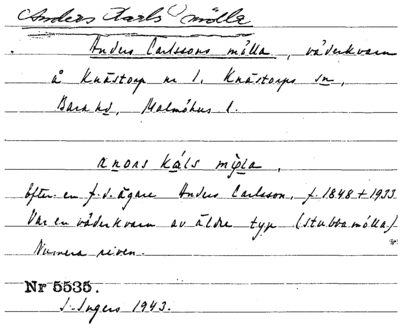 Anders Karls mölla
Anders Carlssons mölla, väderkvarn
å Knästorp nr 1, Knästorps sn,
Bara hd, Malmöhus l.
anors káls mỳla,
Efter en f.d. ägare Anders Carlsson, f. 1848 + 1933
Var en väderkvarn av äldre typ (stubbamölla)
Numera riven.
Nr 5535.
I. Ingers 1943.